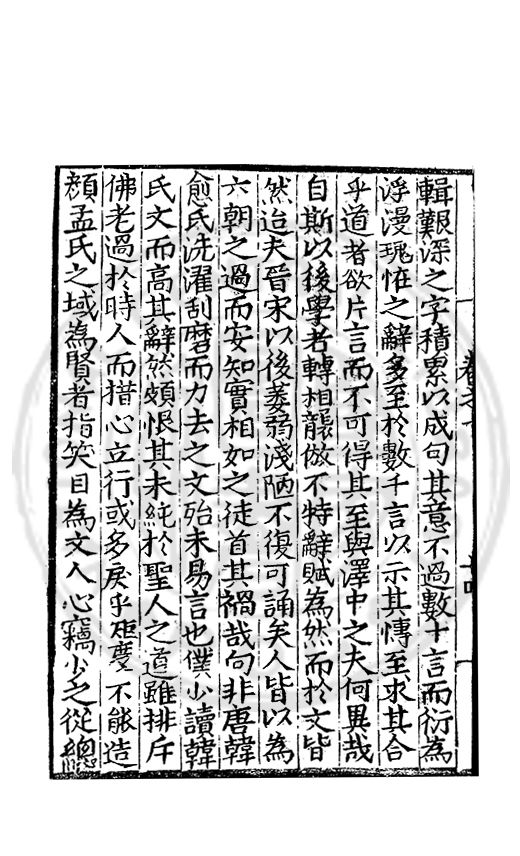 輯艱深之字積累以成句其意不過數十言而衍為
浮漫瑰恠之辭多至於數千言以示其慱至求其合
乎道者欲片言而不可得其至與澤中之夫何異哉
自斯以後學者轉相襲倣不特辭賦為然而於文皆
然迨夫晉宋以後萎弱淺陋不復可誦矣人皆以為
六朝之過而安知實相如之徒首其禍哉句非唐韓
愈氏洗濯刮磨而力去之文殆未易言也僕少讀韓
氏文而高其辭然頗恨其未純於聖人之道雖排斥
佛老過於時人而措心立行或多戾乎矩度不能造
顏孟氏之域為賢者指笑目為文人心竊少之從總